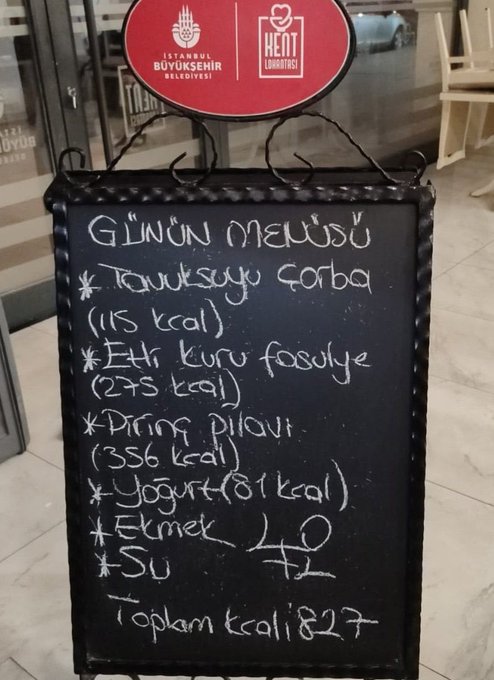 İSTANBUL
BÜYÜKŞEHİR
BELEDİYESİ
KENT
LOKANTASI
GÜNÜN MENÜSÜ
* Tavuksuyu Çorba
(115 kcal)
* Etli kuru fasulye
(275 kcal)
* Pirinç pilavı
(356 kcal)
* Yoğurt (81 kcal)
* Ekmek 40
* Su TL
Toplam kcali 827